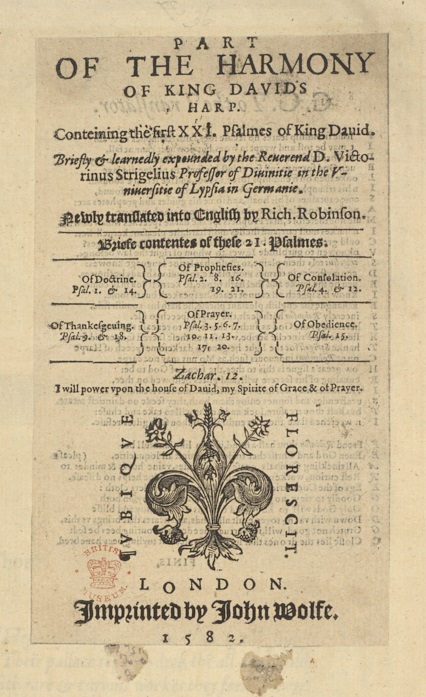 PART
OF THE HARMONY
OF KING DAVIDS
HARP.
Conteining the first XXI. Psalmes of King Dauid.
Briefly & learnedly expounded by the Reuerend D. Victo-
rinus Strigelius Professor of Diuinitie in the V-
niuersitie of Lypsia in Germanie.
Newly translated into English by Rich. Robinson.
Briefe contentes of these 21. Psalmes.
Of Doctrine. Of Prophesies. Of Consolation.
Psal. 1. & 14. Psal. 2. 8. 16. Psal. 4. & 12.
19. 21.
Of Thankesgeuing. Of Prayer. Of Obedience.
Psal. 9. & 18. Psal. 3. 5. 6. 7. Psal. 15.
10. 11. 13.
17. 20.
Zachar. 12.
I will power vpon the house of Dauid, my Spirite of Grace & of Prayer.
VBIQVE
FLORESCIT.
BRITISH
MUSEUM
LONDON.
Imprinted by John Wolfe.
1582.